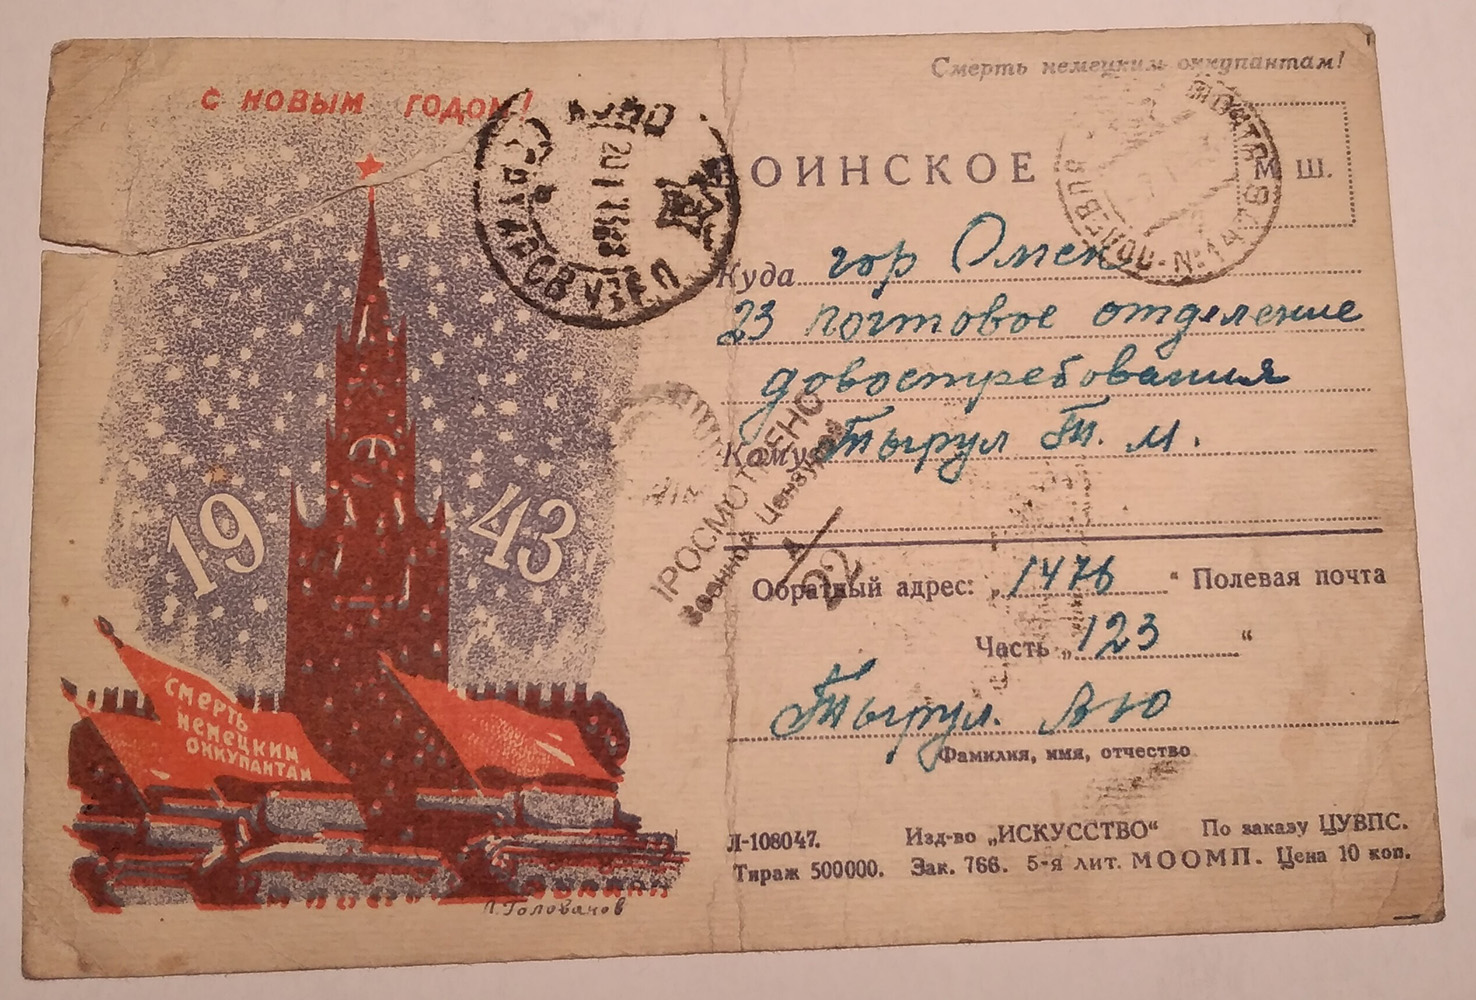 С НОВЫМ ГОДОМ!
1943
СМЕРТЬ
НЕМЕЦКИМ
ОККУПАНТАМ
Л. Голованов
Смерть немецким оккупантам!
ОИНСКОЕ
М Ш.
Куда гор Омск
23 почтовое отделение
довостребования
Кому Тырул Т. М.
РОСМОТРЕНО
Военной Цензурой
22
Обратный адрес: „1476 “ Полевая почта
Часть „123 “
Тырул. ВЮ
Фамилия, имя, отчество
Л-108047. Изд-во „ИСКУССТВО“ По заказу ЦУВПС.
Тираж 500000. Зак. 766. 5-я лит. МООМП. Цена 10 коп.